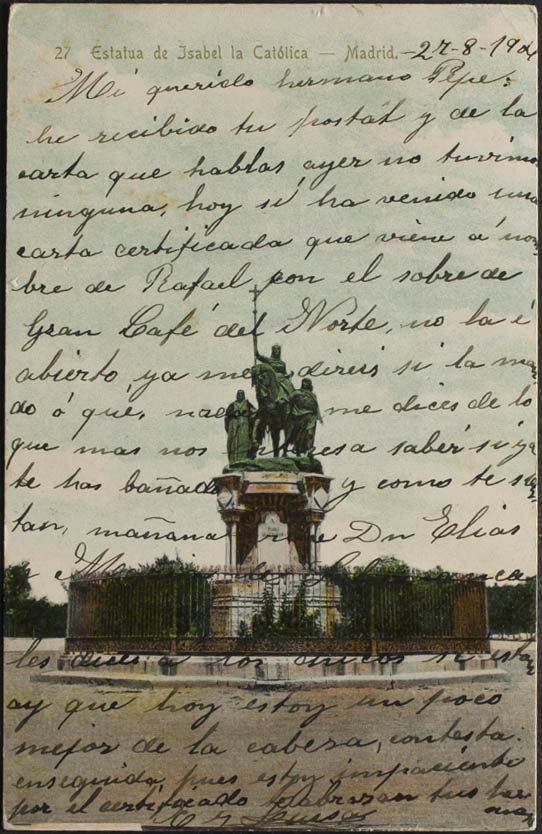 27 Estatua de Isabel la Católica — Madrid. -27-8-190
Mi querido hermano Pepe:
he recibido tu postal y de la
carta que hablas, ayer no tuvimos
ninguna, hoy sí ha venido una
carta certificada que viene á nom
bre de Rafael, con el sobre de
Gran Café del Norte, no la é
abierto, ya me direis si la man
do ó qué, me dices de lo
que mas nos interesa saber si ya
te has bañado y como te sien
tan, mañana Dn Elias
y
les dices á los chicos si estan
ay que hoy estoy un poco
mejor de la cabeza, contesta.
enseguida pues estoy impaciente
por el certificado tus her
manas
Luisa